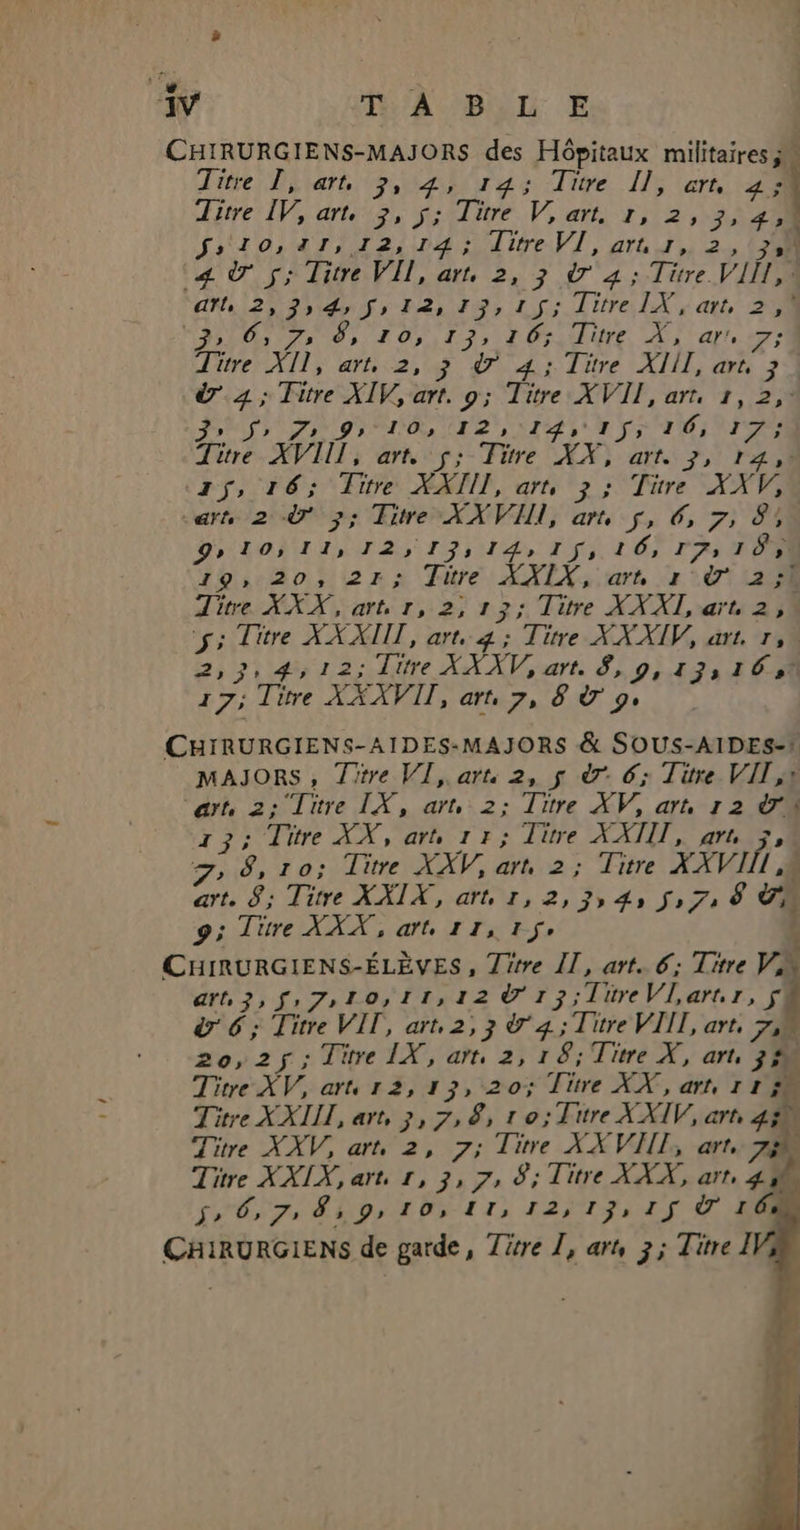 iv TABLE
CHIRURGIENS-MAJORS des Hôpitaux militaires;
Titre I, art. 3, 4, 14; Titre II, art. 4;
Titre IV, art. 3, 5; Titre V, art. 1, 2, 3, 4,
5, 10, 11, 12, 14; Titre VI, art. 1, 2, 3,
4 & 5; Titre VII, art. 2, 3 & 4; Titre VIII,
art. 2, 3, 4, 5, 12, 13, 15; Titre IX, art. 2,
3, 6, 7, 8, 10, 13, 16; Titre X, art. 7;
Titre XII, art. 2, 3 & 4; Titre XIII, art. 3
& 4; Titre XIV, art. 9; Titre XVII, art. 1, 2,
3, 5, 7, 9, 10, 12, 14, 15, 16, 17;
Titre XVIII, art. 5; Titre XX, art. 3, 14,
15, 16; Titre XXIII, art. 3; Titre XXV,
art. 2 & 3; Titre XXVIII, art. 5, 6, 7, 8,
9, 10, 11, 12, 13, 14, 15, 16, 17, 18,
19, 20, 21; Titre XXIX, art. 1 & 2;
Titre XXX, art. 1, 2, 13; Titre XXXI, art. 2,
5; Titre XXXIII, art. 4; Titre XXXIV, art. 1,
2, 3, 4, 12; Titre XXXV, art. 8, 9, 13, 16,
17; Titre XXXVII, art. 7, 8 & 9.
CHIRURGIENS-AIDES-MAJORS & SOUS-AIDES-
MAJORS, Titre VI, art. 2, 5 & 6; Titre VII,
art. 2; Titre IX, art. 2; Titre XV, art. 12 &
13; Titre XX, art. 11; Titre XXIII, art. 3,
7, 8, 10; Titre XXV, art. 2; Titre XXVIII,
art. 8; Titre XXIX, art. 1, 2, 3, 4, 5, 7, 8 &
9; Titre XXX, art. 11, 15.
CHIRURGIENS-ÉLÈVES, Titre II, art. 6; Titre V,
art. 3, 5, 7, 10, 11, 12 & 13; Titre VI, art. 1, 5
& 6; Titre VII, art. 2, 3 & 4; Titre VIII, art. 7,
20, 25; Titre IX, art. 2, 18; Titre X, art. 3;
Titre XV, art. 12, 13, 20; Titre XX, art. 11;
Titre XXIII, art. 3, 7, 8, 10; Titre XXIV, art. 4;
Titre XXV, art. 2, 7; Titre XXVIII, art. 7;
Titre XXIX, art. 1, 3, 7, 8; Titre XXX, art. 4,
5, 6, 7, 8, 9, 10, 11, 12, 13, 15 & 16.
CHIRURGIENS de garde, Titre I, art. 3; Titre IV,